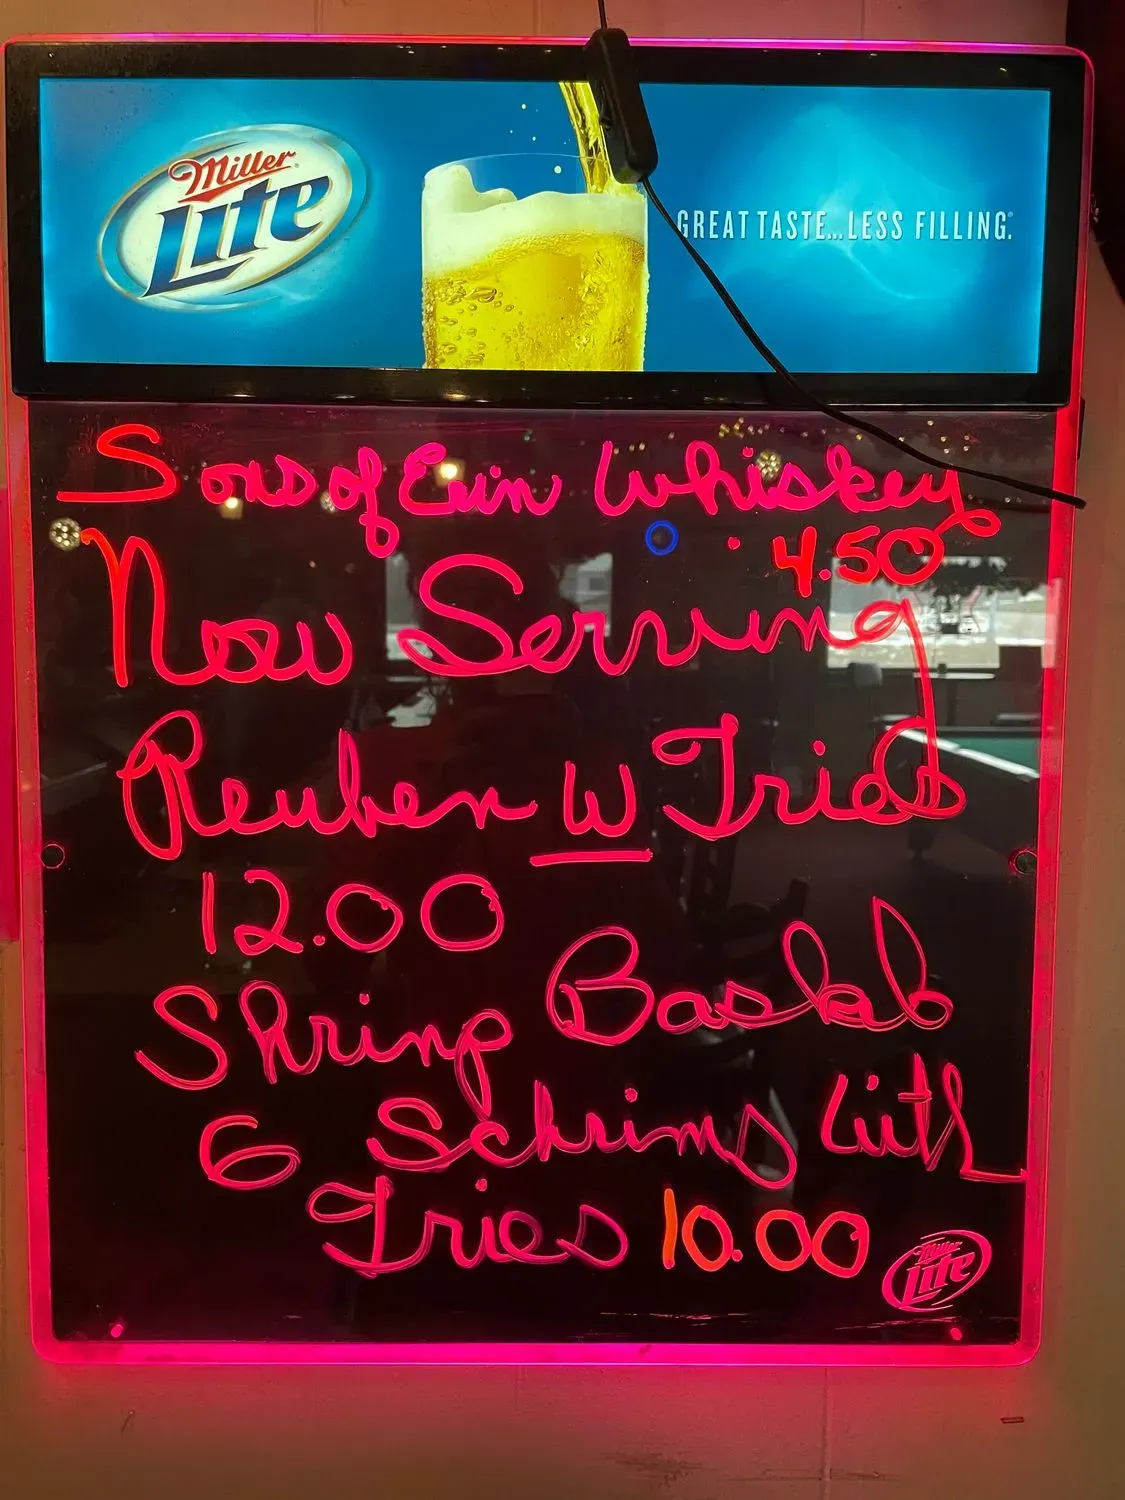 Miller
Lite
GREAT TASTE...LESS FILLING.
Sons of Erin Whiskey
4.50
Now Serving
Reuben W Fries
12.00
Shrimp Baskb
6 Schrimp With
Fries 10.00
Miller
Lite